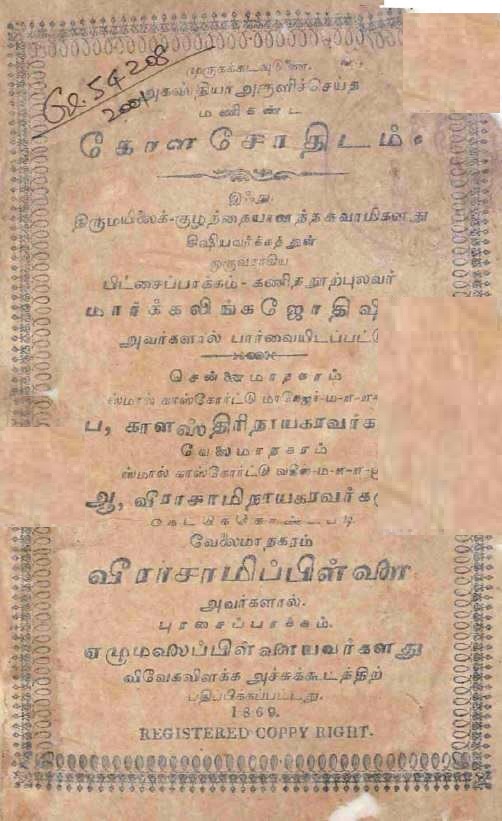 முருகக்கடவுடுணை.
அகஸ்தியர் அருளிச்செய்த
மணிகண்ட
கோளசோதிடம்.
இஃது
திருமயிலைக்-குழந்தையானந்தசுவாமிகளது
சிஷியவர்க்கத்துள்
ஒருவராகிய
பிட்சைப்பாக்கம்-கணிதநூற்புலவர்
மார்க்கலிங்கஜோதிஷ
அவர்களால் பார்வையிடப்பட்டு
சென்னைமாநகரம்
ஸ்மால் காஸ்கோர்ட்டு
ப, காளஸ்திரிநாயகரவர்க
வேலைமாநகரம்
ஸ்மால் காஸ்கோர்ட்டு
ஆ, வீராசாமிநாயகரவர்க
கேட்டுக்கொண்டபடி
வேலைமாநகரம்
வீராசாமிப்பிள்ளை
அவர்களால்.
புரசைப்பாக்கம்.
ஏழுமலைப்பிள்ளையவர்களது
விவேகவிளக்க அச்சுக்கூடத்திற்
பதிப்பிக்கப்பட்டது.
1869.
REGISTERED COPPY RIGHT.